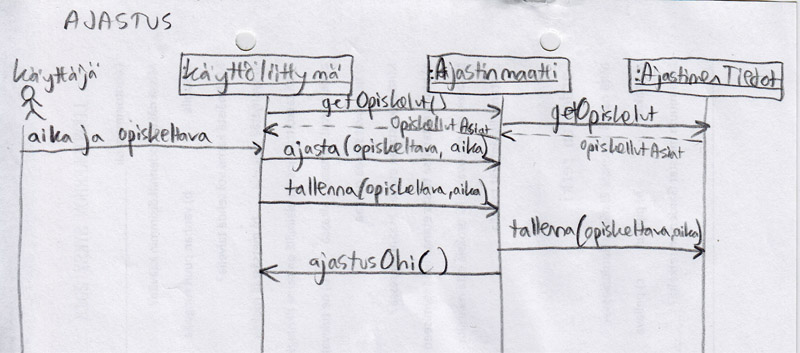 AJASTUS
käyttäjä
:käyttöliittymä
:Ajastinmaatti
:AjastimenTiedot
getOpiskelut()
getOpiskelut
OpiskellutAsiat
opiskellutAsiat
aika ja opiskeltava
ajasta(opiskeltava, aika)
tallenna(opiskeltava,aika)
tallenna(opiskeltava,aika)
ajastusOhi()